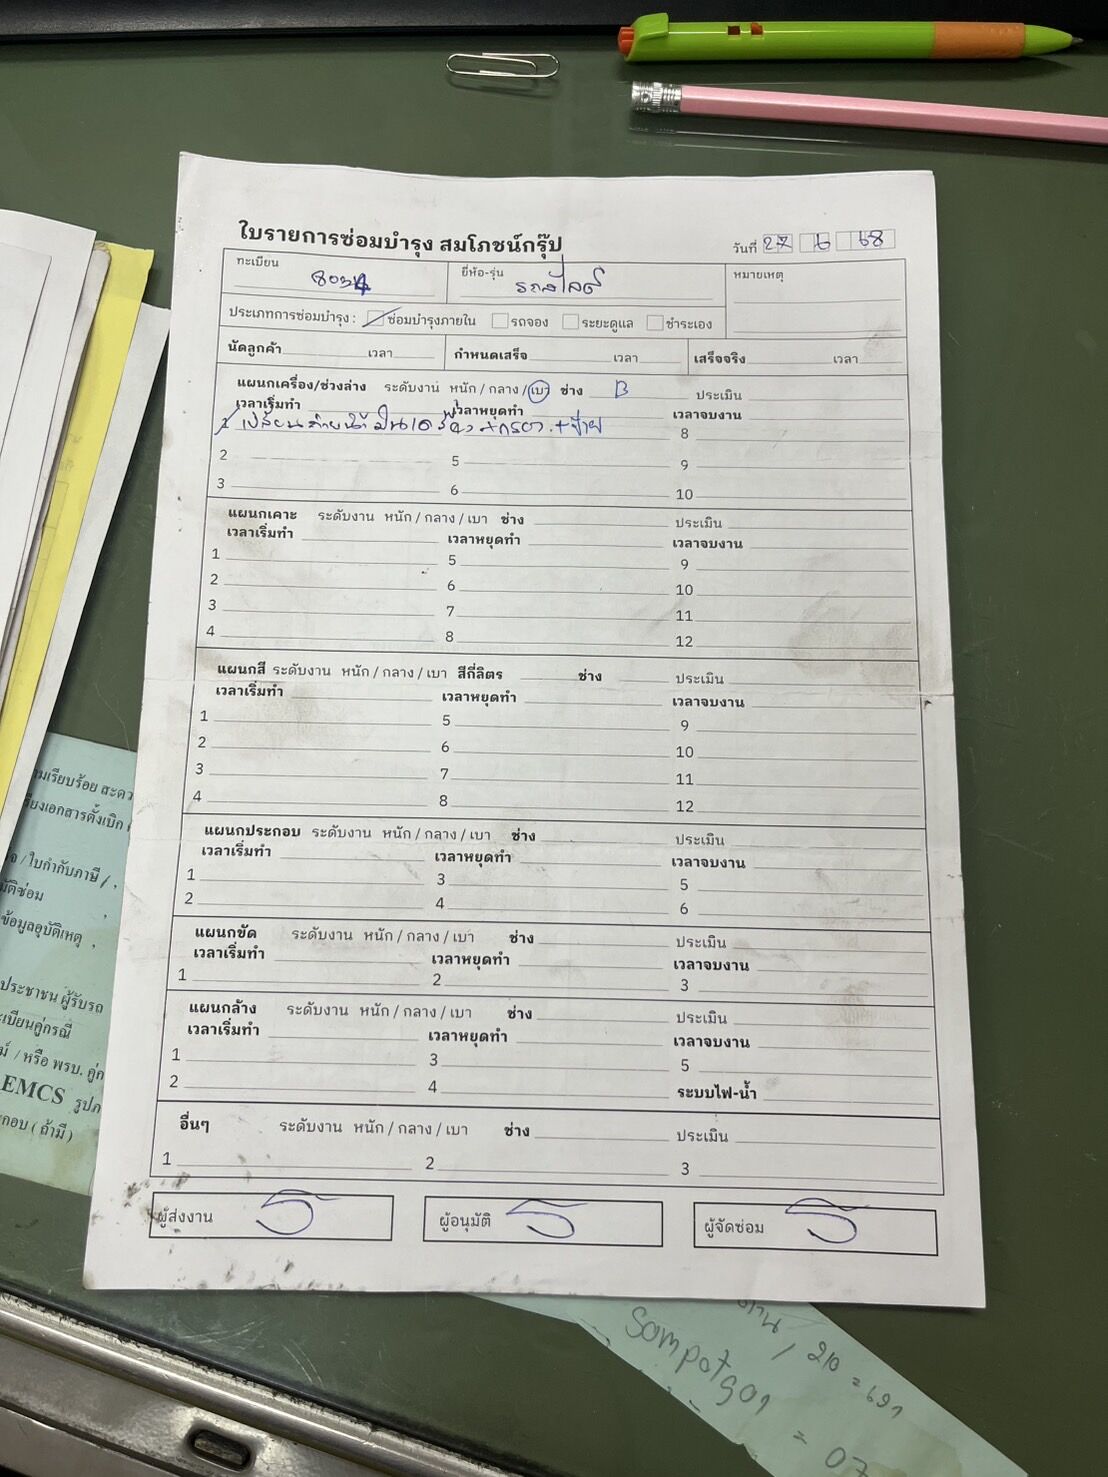 ใบรายการซ่อมบำรุง สมโภชน์กรุ๊ป
วันที่ 27 6 68
ทะเบียน 8034 ยี่ห้อ-รุ่น รถสไลด์ หมายเหตุ
ประเภทการซ่อมบำรุง : ซ่อมบำรุงภายใน รถจอง ระยะดูแล ชำระเอง
นัดลูกค้า เวลา กำหนดเสร็จ เวลา เสร็จจริง เวลา
แผนกเครื่อง/ช่วงล่าง ระดับงาน หนัก / กลาง / เบา ช่าง B ประเมิน
เวลาเริ่มทำ เวลาหยุดทำ เวลาจบงาน
1 เปลี่ยนสายน้ำมัน 8
2 5 9
3 6 10
แผนกเคาะ ระดับงาน หนัก / กลาง / เบา ช่าง ประเมิน
เวลาเริ่มทำ เวลาหยุดทำ เวลาจบงาน
1 5 9
2 6 10
3 7 11
4 8 12
แผนกสี ระดับงาน หนัก / กลาง / เบา สีกี่ลิตร ช่าง ประเมิน
เวลาเริ่มทำ เวลาหยุดทำ เวลาจบงาน
1 5 9
2 6 10
3 7 11
4 8 12
แผนกประกอบ ระดับงาน หนัก / กลาง / เบา ช่าง ประเมิน
เวลาเริ่มทำ เวลาหยุดทำ เวลาจบงาน
1 3 5
2 4 6
แผนกขัด ระดับงาน หนัก / กลาง / เบา ช่าง ประเมิน
เวลาเริ่มทำ เวลาหยุดทำ เวลาจบงาน
1 2 3
แผนกล้าง ระดับงาน หนัก / กลาง / เบา ช่าง ประเมิน
เวลาเริ่มทำ เวลาหยุดทำ เวลาจบงาน
1 3 5
2 4 ระบบไฟ-น้ำ
อื่นๆ ระดับงาน หนัก / กลาง / เบา ช่าง ประเมิน
1 2 3
ผู้ส่งงาน ผู้อนุมัติ ผู้จัดซ่อม
เรียบร้อย
เอกสารตั้งเบิก
/ ใบกำกับภาษี / ,
ข้อมูลอุบัติเหตุ ,
ประชาชน ผู้รับรถ
/ หรือ พรบ.
EMCS
( ถ้ามี )
/ 210 = 691
= 07